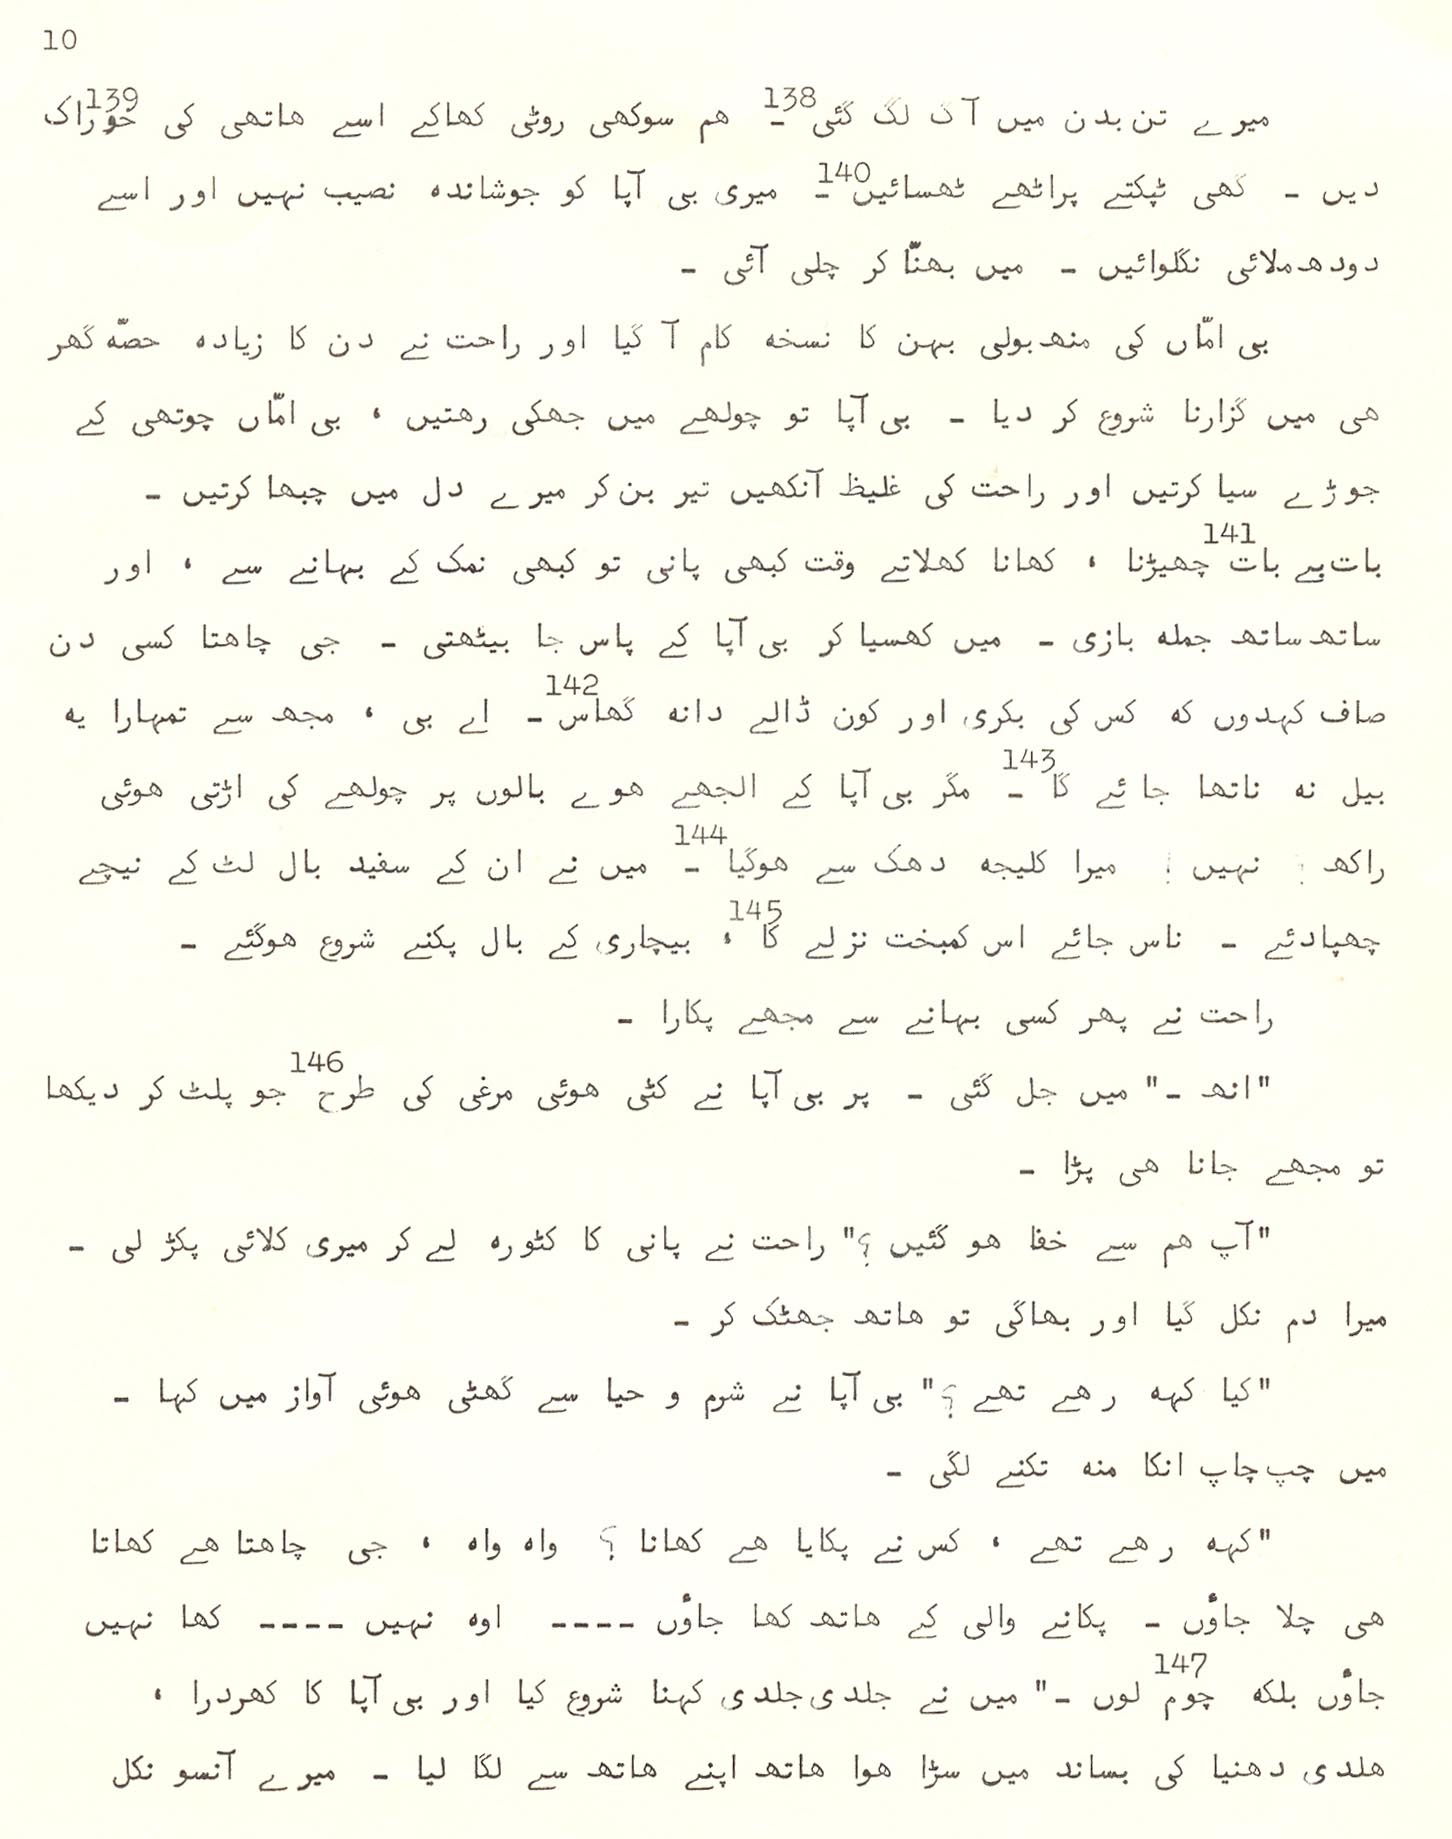 10
میرے تن بدن میں آگ لگ گئی138۔ هم سوکھی روٹی کھاکے اسے هاتھی کی خوراک139
دیں ۔ گھی ٹپکتے پراٹھے ٹھسائیں140۔ میری بی آپا کو جوشاندہ نصیب نہیں اور اسے
دودھ ملائی نگلوائیں ۔ میں بھنّا کر چلی آئی ۔
بی امّاں کی منھ بولی بہن کا نسخہ کام آ گیا اور راحت نے دن کا زیادہ حصّہ گھر
هی میں گزارنا شروع کر دیا ۔ بی آپا تو چولھے میں جھکی رهتیں ، بی امّاں چوتھی کے
جوڑے سیا کرتیں اور راحت کی غلیظ آنکھیں تیر بن کر میرے دل میں چبھا کرتیں ۔
بات بے بات141 چھیڑنا ، کھانا کھلاتے وقت کبھی پانی تو کبھی نمک کے بہانے سے ، اور
ساتھ ساتھ جملہ بازی ۔ میں کھسیا کر بی آپا کے پاس جا بیٹھتی ۔ جی چاهتا کسی دن
صاف کہدوں کہ کس کی بکری اور کون ڈالے دانہ گھاس142۔ اے بی ، مجھ سے تمہارا یہ
بیل نہ ناتھا جائے گا143۔ مگر بی آپا کے الجھے هوے بالوں پر چولھے کی اڑتی هوئی
راکھ ! نہیں ! میرا کلیجہ دھک سے هوگیا144۔ میں نے ان کے سفید بال لٹ کے نیچے
چھپادئے ۔ ناس جائے اس کمبخت نزلے کا145، بیچاری کے بال پکنے شروع هوگئے ۔
راحت نے پھر کسی بہانے سے مجھے پکارا ۔
"انھ ۔" میں جل گئی ۔ پر بی آپا نے کٹی هوئی مرغی کی طرح146 جو پلٹ کر دیکھا
تو مجھے جانا هی پڑا ۔
"آپ هم سے خفا هو گئیں ؟" راحت نے پانی کا کٹورہ لے کر میری کلائی پکڑ لی ۔
میرا دم نکل گیا اور بھاگی تو هاتھ جھٹک کر ۔
"کیا کہہ رهے تھے ؟" بی آپا نے شرم و حیا سے گھٹی هوئی آواز میں کہا ۔
میں چپ چاپ انکا منہ تکنے لگی ۔
"کہہ رهے تھے ، کس نے پکایا هے کھانا ؟ واہ واہ ، جی چاهتا هے کھاتا
هی چلا جاؤں ۔ پکانے والی کے هاتھ کھا جاؤں ۔۔۔۔ اوہ نہیں ۔۔۔۔ کھا نہیں
جاؤں بلکہ چوم147 لوں ۔" میں نے جلدی جلدی کہنا شروع کیا اور بی آپا کا کھردرا ،
هلدی دھنیا کی بساند میں سڑا هوا هاتھ اپنے هاتھ سے لگا لیا ۔ میرے آنسو نکل